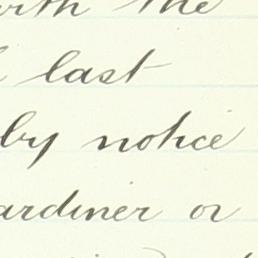 with the
last
by notice
ardiner or